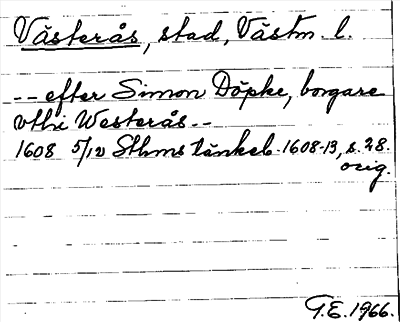 Västerås, stad, Västm. l.
-- efter Simon Döpke, borgare
vthi Westerås --
1608 5/12 Sthms tänkeb. 1608-13, s. 28.
orig.
G.E. 1966.